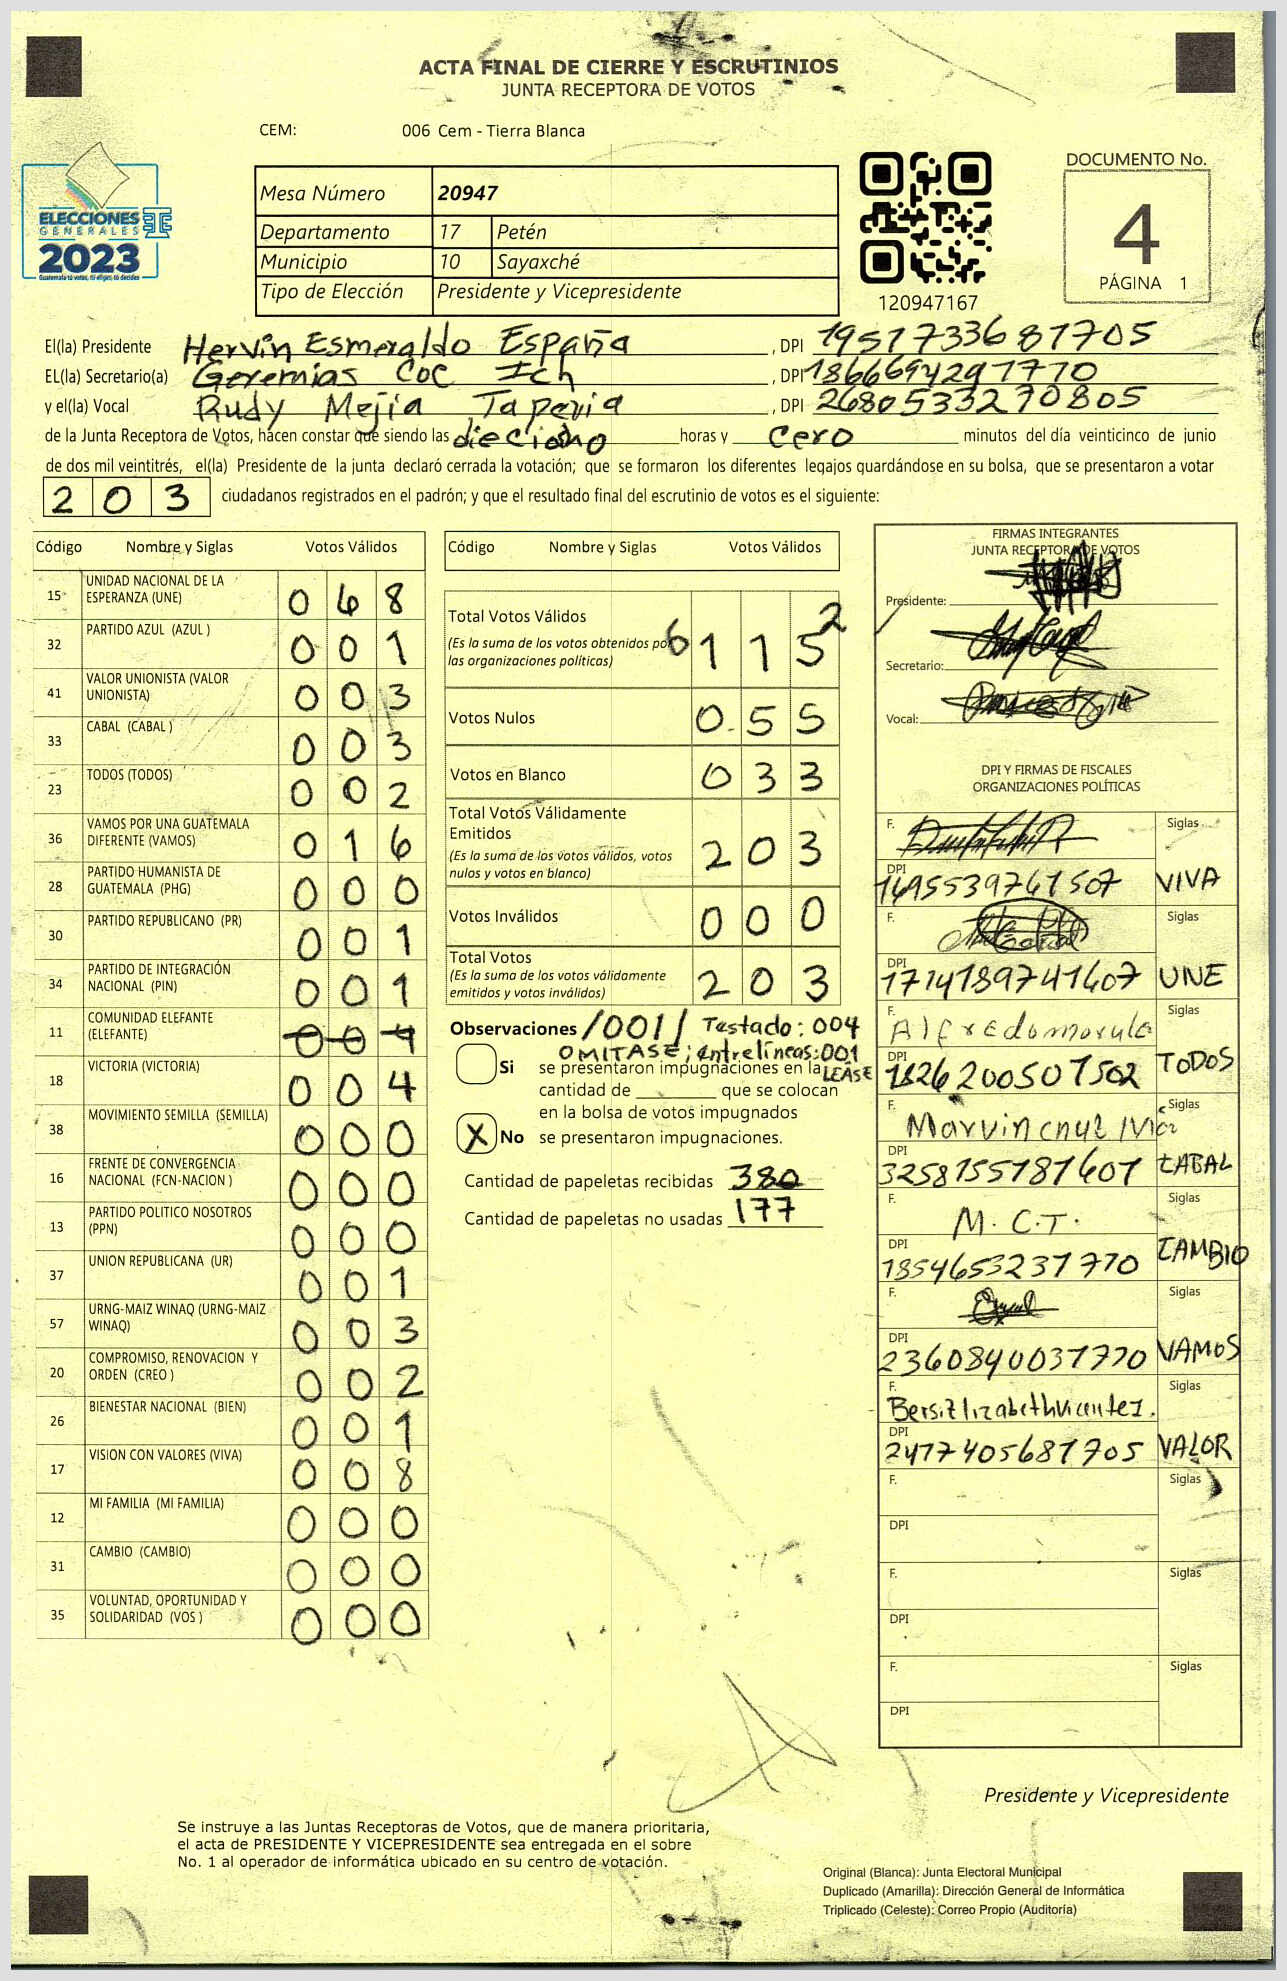 ACTA FINAL DE CIERRE Y ESCRUTINIOS
JUNTA RECEPTORA DE VOTOS
CEM: 006 Cem - Tierra Blanca
ELECCIONES
GENERALES
2023
Guatemala tú votas, tú eliges, tú decides
Mesa Número 20947
Departamento 17 Petén
Municipio 10 Sayaxché
Tipo de Elección Presidente y Vicepresidente
120947167
DOCUMENTO No.
4
PÁGINA 1
El(la) Presidente Hervin Esmeraldo España , DPI 1951733681705
EL(la) Secretario(a) Geremias Coc Ich , DPI 1866694291770
y el(la) Vocal Rudy Mejia Taperia , DPI 2680533270805
de la Junta Receptora de Votos, hacen constar que siendo las dieciocho horas y cero minutos del día veinticinco de junio
de dos mil veintitrés, el(la) Presidente de la junta declaró cerrada la votación; que se formaron los diferentes legajos guardándose en su bolsa, que se presentaron a votar
203 ciudadanos registrados en el padrón; y que el resultado final del escrutinio de votos es el siguiente:
Código Nombre y Siglas Votos Válidos
15 UNIDAD NACIONAL DE LA ESPERANZA (UNE) 068
32 PARTIDO AZUL (AZUL ) 001
41 VALOR UNIONISTA (VALOR UNIONISTA) 003
33 CABAL (CABAL ) 003
23 TODOS (TODOS) 002
36 VAMOS POR UNA GUATEMALA DIFERENTE (VAMOS) 016
28 PARTIDO HUMANISTA DE GUATEMALA (PHG) 000
30 PARTIDO REPUBLICANO (PR) 001
34 PARTIDO DE INTEGRACIÓN NACIONAL (PIN) 001
11 COMUNIDAD ELEFANTE (ELEFANTE) 004 /001/
18 VICTORIA (VICTORIA) 004
38 MOVIMIENTO SEMILLA (SEMILLA) 000
16 FRENTE DE CONVERGENCIA NACIONAL (FCN-NACION ) 000
13 PARTIDO POLITICO NOSOTROS (PPN) 000
37 UNION REPUBLICANA (UR) 001
57 URNG-MAIZ WINAQ (URNG-MAIZ WINAQ) 003
20 COMPROMISO, RENOVACION Y ORDEN (CREO ) 002
26 BIENESTAR NACIONAL (BIEN) 001
17 VISION CON VALORES (VIVA) 008
12 MI FAMILIA (MI FAMILIA) 000
31 CAMBIO (CAMBIO) 000
35 VOLUNTAD, OPORTUNIDAD Y SOLIDARIDAD (VOS ) 000
Código Nombre y Siglas Votos Válidos
Total Votos Válidos 6 115 2
(Es la suma de los votos obtenidos por
las organizaciones políticas)
Votos Nulos 055
Votos en Blanco 033
Total Votos Válidamente
Emitidos 203
(Es la suma de los votos válidos, votos
nulos y votos en blanco)
Votos Inválidos 000
Total Votos 203
(Es la suma de los votos válidamente
emitidos y votos inválidos)
Observaciones Testado: 004
OMITASE; entrelíneas: 001
LEASE
Si se presentaron impugnaciones en la
cantidad de ________ que se colocan
en la bolsa de votos impugnados
X No se presentaron impugnaciones.
Cantidad de papeletas recibidas 380
Cantidad de papeletas no usadas 177
FIRMAS INTEGRANTES
JUNTA RECEPTORA DE VOTOS
Presidente:
Secretario:
Vocal:
DPI Y FIRMAS DE FISCALES
ORGANIZACIONES POLÍTICAS
F. Siglas
DPI 1495539761507 VIVA
F. Siglas
DPI 1714189741607 UNE
F. Alfredo Siglas
DPI 1826200501502 TODOS
F. Marvin cruz Siglas
DPI 3258155181601 CABAL
F. M.C.T. Siglas
DPI 1854653231770 CAMBIO
F. Siglas
DPI 2360840031770 VAMOS
F. Siglas
DPI 2417405681705 VALOR
F. Siglas
DPI
F. Siglas
DPI
F. Siglas
DPI
Presidente y Vicepresidente
Se instruye a las Juntas Receptoras de Votos, que de manera prioritaria,
el acta de PRESIDENTE Y VICEPRESIDENTE sea entregada en el sobre
No. 1 al operador de informática ubicado en su centro de votación.
Original (Blanca): Junta Electoral Municipal
Duplicado (Amarilla): Dirección General de Informática
Triplicado (Celeste): Correo Propio (Auditoría)